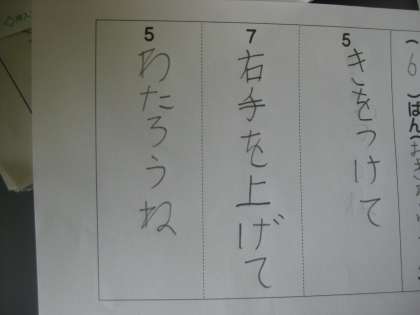 6 ごばん
5
きをつけて
7
右手を上げて
5
わたろうね